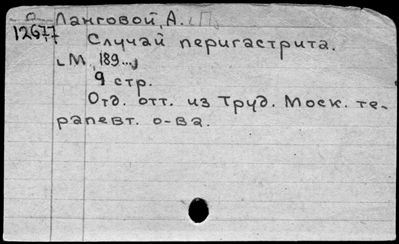 Ланговой, А. П.
12677
Случай перигастрита.
[М., 189...]
9 стр.
Отд. отт. из Труд. Моск. те-
рапевт. о-ва.